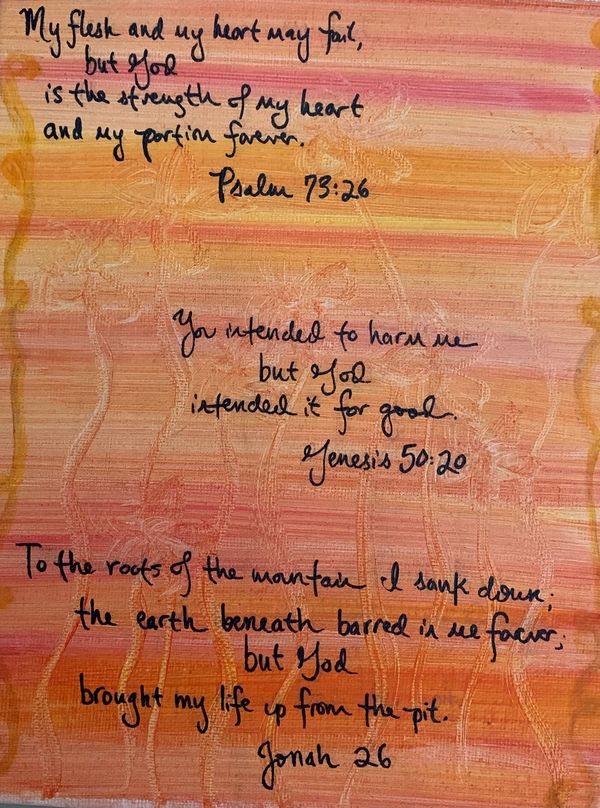 My flesh and my heart may fail,
but God
is the strength of my heart
and my portion forever.
Psalm 73:26
You intended to harm me
but God
intended it for good.
Genesis 50:20
To the roots of the mountain I sank down;
the earth beneath barred in me forever;
but God
brought my life up from the pit.
Jonah 26